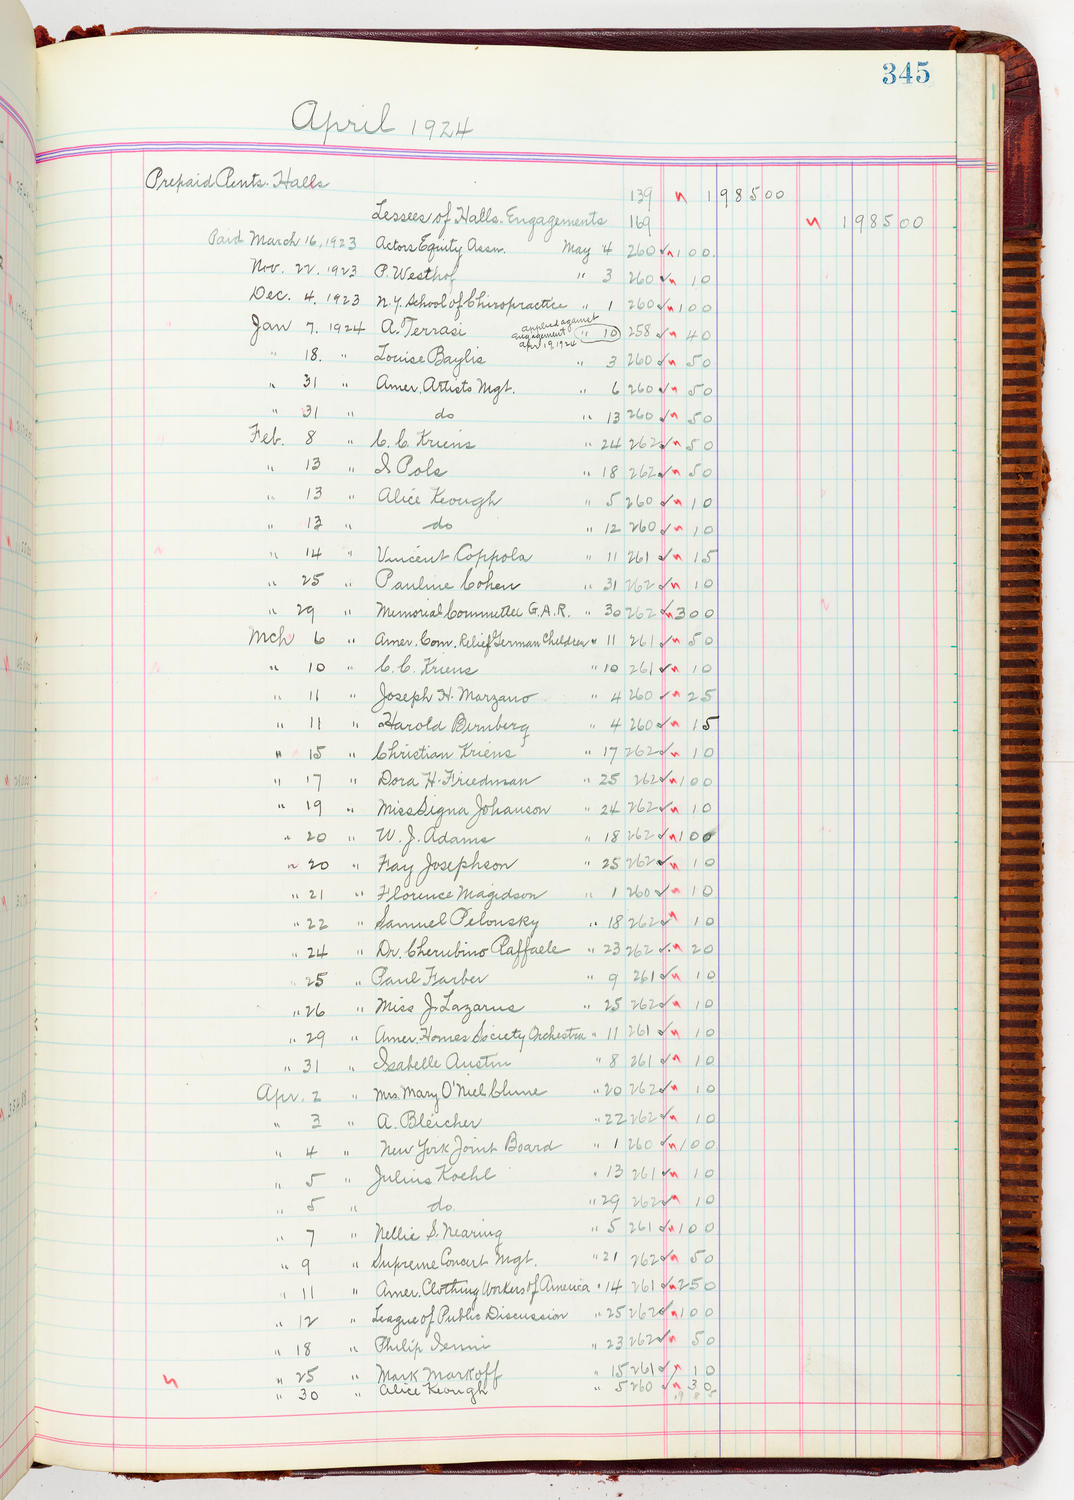 345
April 1924
Prepaid Rents. Halls 139 198500
Lessees of Halls. Engagements 169 198500
Paid March 16, 1923 Actors Equity Assn. May 4 260 100.
Nov. 22. 1923 P. Westhof " 3 260 10
Dec. 4. 1923 N.Y. School of Chiropractice " 1 260 100
Jan 7. 1924 A. Terrasi applied against engagement apr 19, 1924 " 10 258 40
" 18. " Louise Baylis " 3 260 50
" 31 " Amer. Artists Mgt. " 6 260 50
" 31 " do " 13 260 50
Feb. 8 " C. C. Kriens " 24 262 50
" 13 " S Pols " 18 262 50
" 13 " Alice Keough " 5 260 10
" 13 " do " 12 260 10
" 14 " Vincent Coppola " 11 261 15
" 25 " Pauline Cohen " 31 262 10
" 29 " Memorial Committee G.A.R. " 30 262 300
Mch 6 " Amer. Com. Relief German Children " 11 261 50
" 10 " C. C. Kriens " 10 261 10
" 11 " Joseph H. Marzano " 4 260 25
" 11 " Harold Birnberg " 4 260 15
" 15 " Christian Kriens " 17 262 10
" 17 " Dora H. Friedman " 25 262 100
" 19 " Miss Signa Johanson " 24 262 10
" 20 " W. J. Adams " 18 262 100
" 20 " Fay Josephson " 25 262 10
" 21 " Florence Magidson " 1 260 10
" 22 " Samuel Pelonsky " 18 262 10
" 24 " Dr. Cherubino Raffaele " 23 262 20
" 25 " Paul Farber " 9 261 10
" 26 " Miss J. Lazarus " 25 262 10
" 29 " Amer. Homes Society Orchestra " 11 261 10
" 31 " Isabelle Austin " 8 261 10
Apr. 2 " Mrs. Mary O'Niel Clune " 20 262 10
" 3 " A. Bleicher " 22 262 10
" 4 " New York Joint Board " 1 260 100
" 5 " Julius Koehl " 13 261 10
" 5 " do. " 29 262 10
" 7 " Nellie S. Nearing " 5 261 100
" 9 " Supreme Concert Mgt. " 21 262 50
" 11 " Amer. Clothing Workers of America " 14 261 250
" 12 " League of Public Discussion " 25 262 100
" 18 " Philip Ienni " 23 262 50
" 25 " Mark Markoff " 15 261 10
" 30 " Alice Keough " 5 260 30
1985